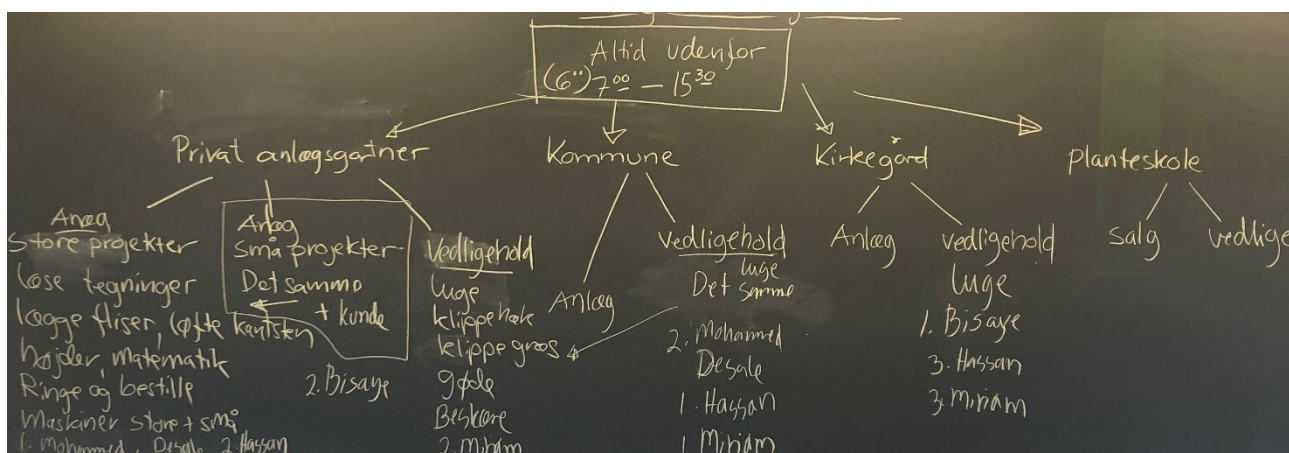 Altid udenfor
(6°°) 7⁰⁰ — 15³⁰
Privat anlægsgartner
Anlæg
Store projekter
læse tegninger
lægge fliser, løfte kantsten
højder, matematik
Ringe og bestille
Maskiner store + små
1. Mohammed, Desale 2. Hassan
Anlæg
små projekter
Det samme
+ kunde
2. Bisaye
Vedligehold
luge
klippe hæk
klippe græs
gøde
Beskære
2. Miriam
Kommune
Anlæg
Vedligehold
luge
Det samme
2. Mohammed
Desale
1. Hassan
1. Miriam
Kirkegård
Anlæg
vedligehold
luge
1. Bisaye
3. Hassan
3. Miriam
Planteskole
salg
vedlige